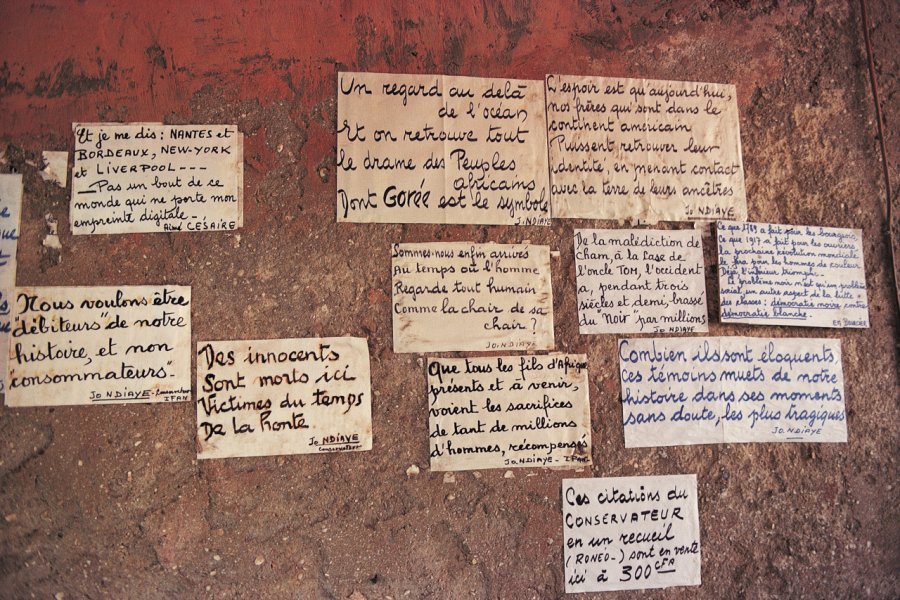 Et je me dis : NANTES et
BORDEAUX, NEW-YORK
et LIVERPOOL ---
_ Pas un bout de ce
monde qui ne porte mon
empreinte digitale -
Aimé CÉSAIRE
Un regard au delà
de l'océan
Et on retrouve tout
le drame des Peuples
africains
Dont GORÉE est le symbole
Jo NDIAYE
L'espoir est qu'aujourd'hui,
nos frères qui sont dans le
continent américain
Puissent retrouver leur
identité, en prenant contact
avec la terre de leurs ancêtres
Jo NDIAYE
Sommes-nous enfin arrivés
Au temps où l'homme
Regarde tout humain
Comme la chair de sa
chair ?
Jo. NDIAYE
De la malédiction de
Cham, à la case de
l'oncle TOM, l'occident
a, pendant trois
siècles et demi, brassé
du "Noir" par millions
Jo NDIAYE
Ce que 1789 a fait pour les bourgeois,
Ce que 1917 a fait pour les ouvriers
la prochaine révolution mondiale
le fera pour les hommes de couleur
Déjà, l'intérieur triomphe -
Le problème noir n'est qu'un problème
social, un autre aspect de la lutte
des classes : démocratie noire contre
démocratie blanche.
"Nous voulons être
débiteurs" de notre
histoire, et non
consommateurs" -
Jo NDIAYE - Conservateur
IFAN
Des innocents
Sont morts ici
Victimes du temps
De la honte
Jo NDIAYE
Conservateur
Que tous les fils d'Afrique,
présents et à venir,
voient les sacrifices
de tant de millions
d'hommes, récompensés
Jo. NDIAYE - IFAN
Combien ils sont éloquents,
ces témoins muets de notre
histoire dans ses moments
sans doute, les plus tragiques
Jo. NDIAYE
Ces citations du
CONSERVATEUR
en un recueil
(RONÉO -) sont en vente
ici à 300 CFA